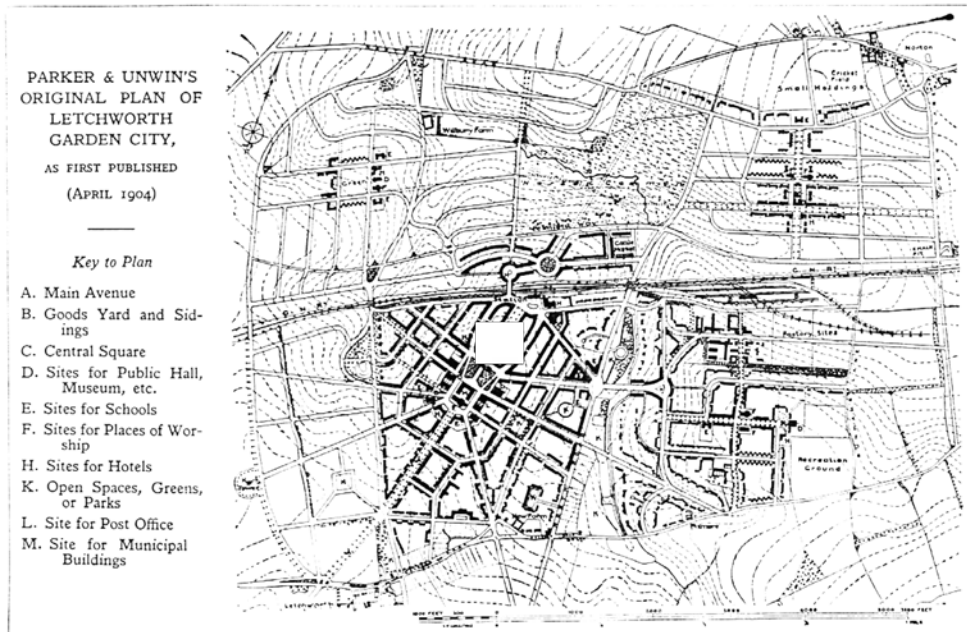 PARKER & UNWIN'S
ORIGINAL PLAN OF
LETCHWORTH
GARDEN CITY,
AS FIRST PUBLISHED
(APRIL 1904)
Key to Plan
A. Main Avenue
B. Goods Yard and Sid-
ings
C. Central Square
D. Sites for Public Hall,
Museum, etc.
E. Sites for Schools
F. Sites for Places of Wor-
ship
H. Sites for Hotels
K. Open Spaces, Greens,
or Parks
L. Site for Post Office
M. Site for Municipal
Buildings
Norton
Cricket
Field
Small Holdings
Wilbury Farm
Green
Norton Common
Factory Sites
Recreation
Ground
Letchworth
1 MILE